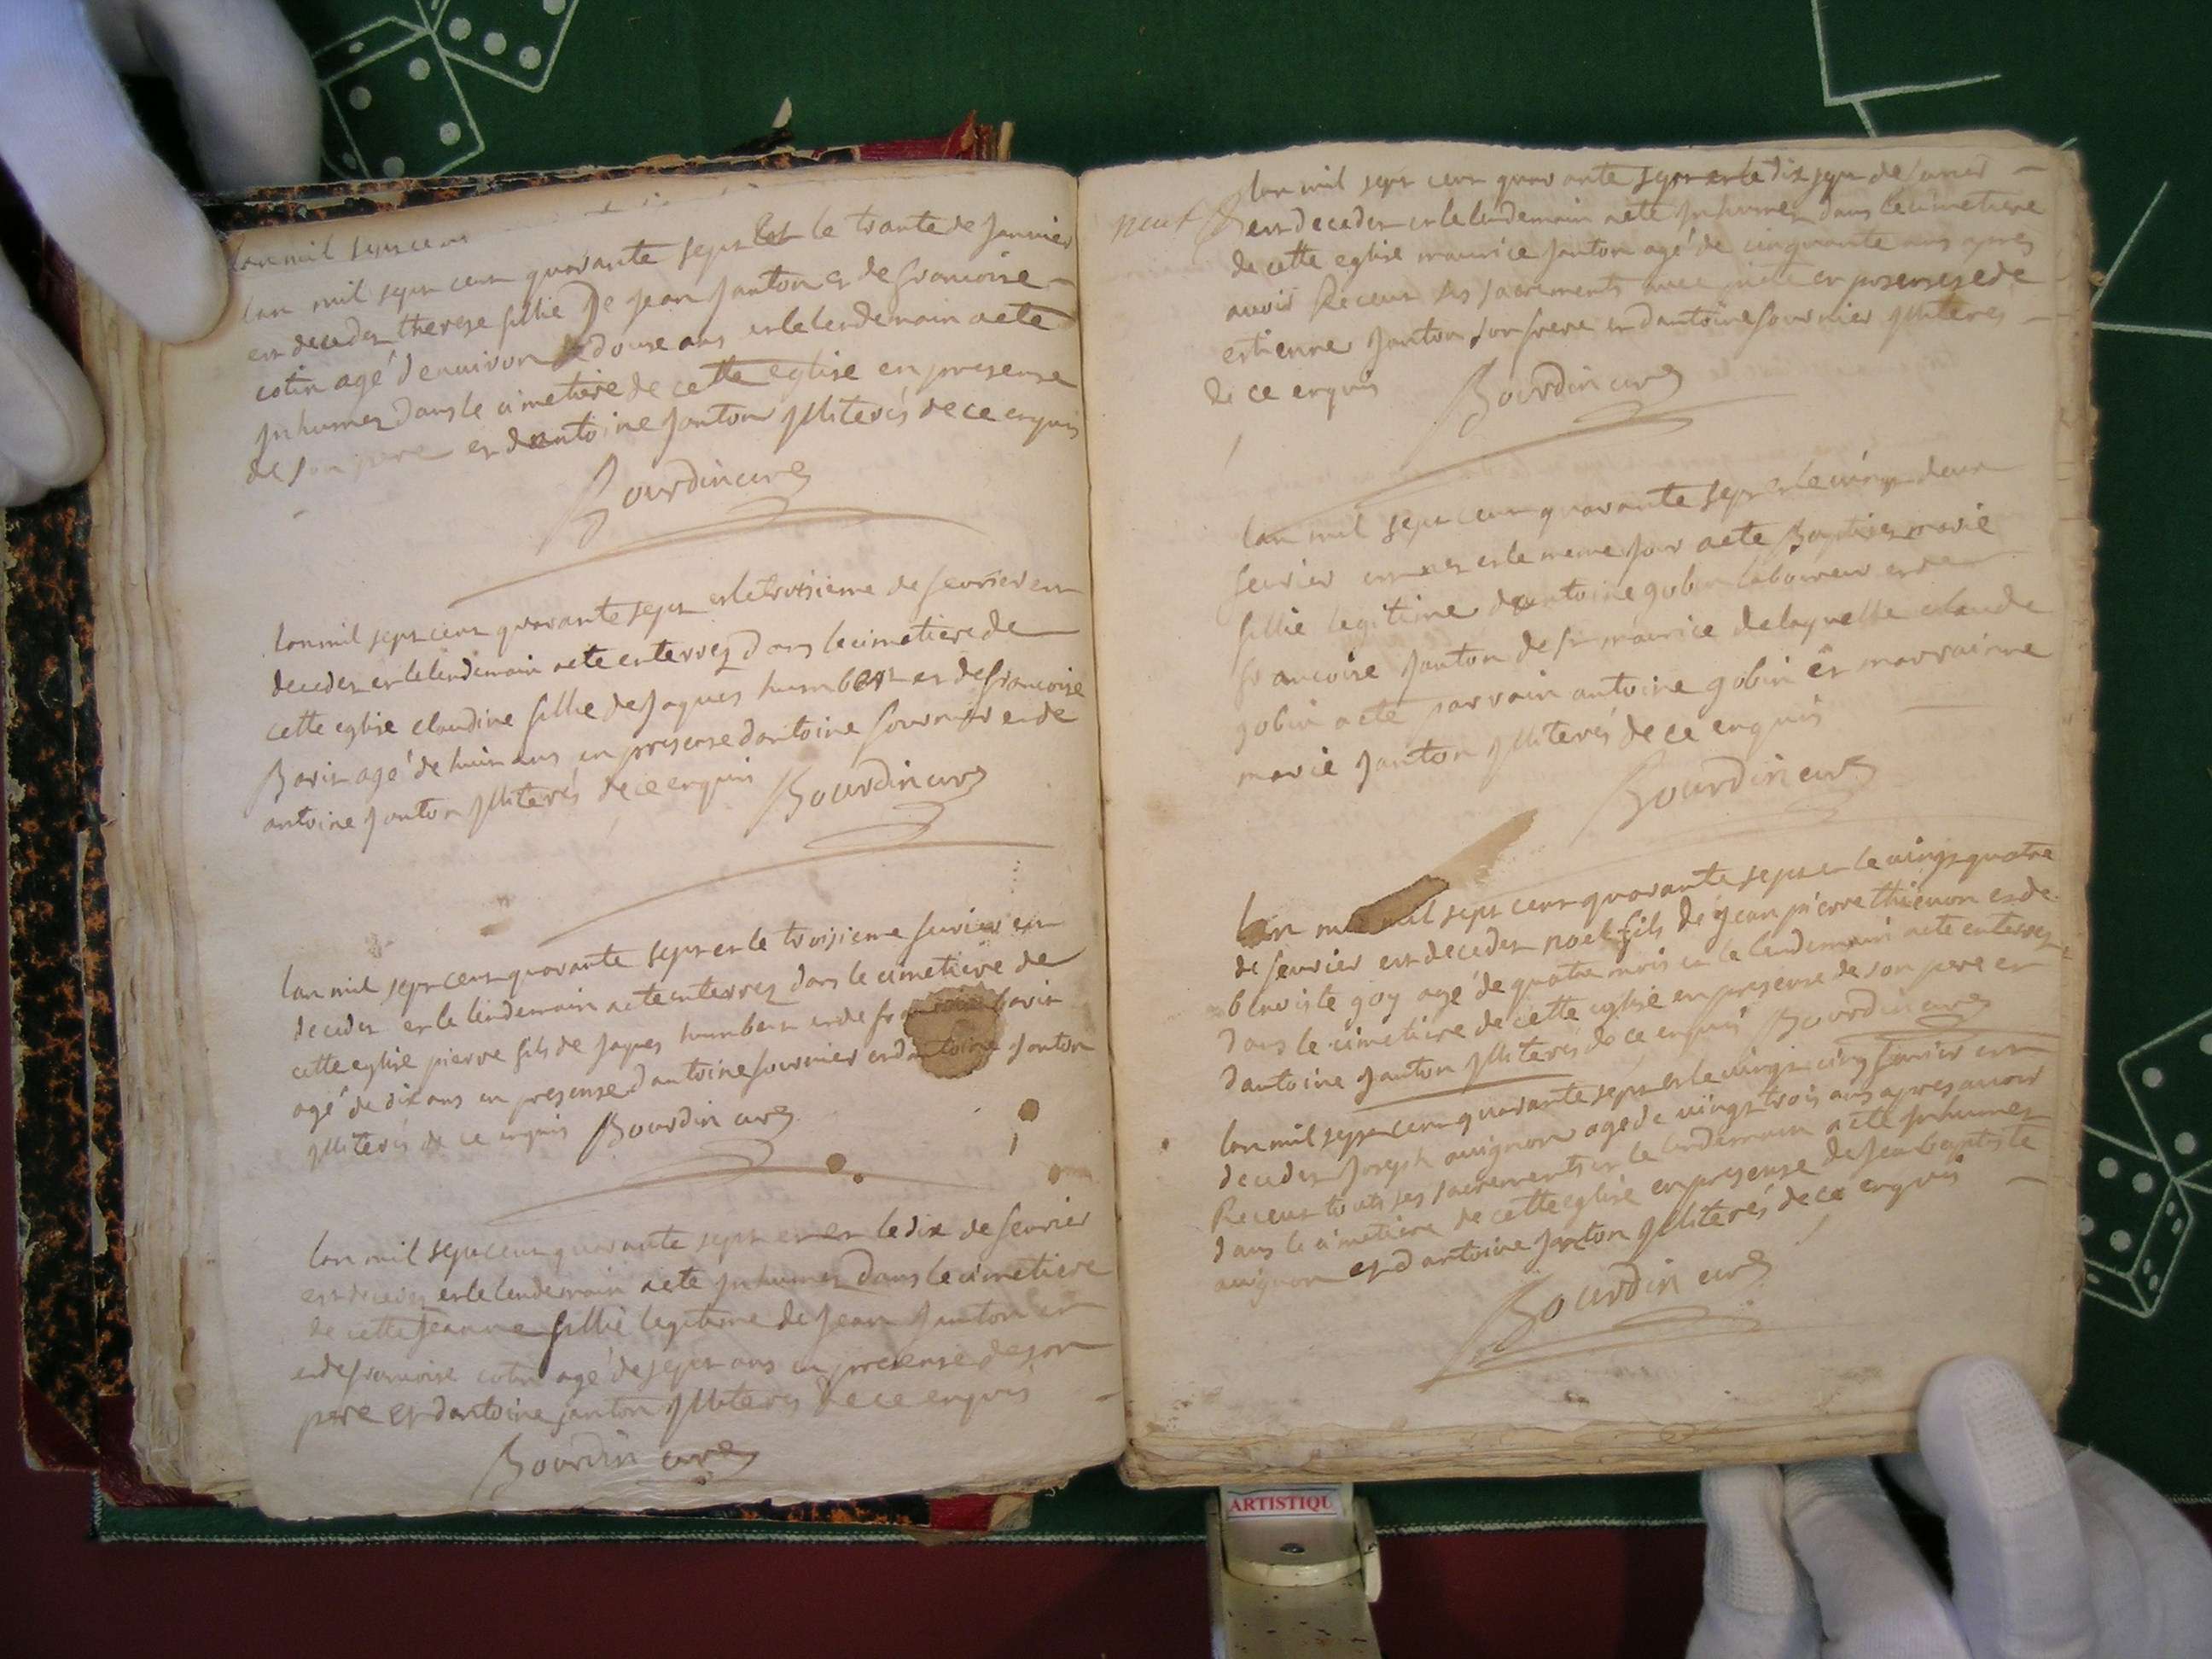 lan mil sept cens
lan mil sept cent quarante sept et le trante de janvier
est decedez therese fillie De jean janton et de francoise
cotin agé denuiron douse ans et le lendemain aeté
jnhumez dans le cimetiere de cette eglise en presense
de son pere et dantoine janton jlliterés de ce enquis
Bourdin curé
lan mil sept cent quarante sept et le troisieme de feurier est
decedez et le lendemain aeté enterrez dans le cimetiere de
cette eglise claudine fillie de jaques humbert et de francoise
Barit agé de huit ans en presense dantoine fournier et de
antoine janton jlliterés de ce enquis Bourdin curé
lan mil sept cent quarante sept et le troisieme feurier est
decedez et le lendemain aeté enterrez dans le cimetiere de
cette eglise pierre fils de jaques humbert et de francoise barit
agé de dix ans en presense dantoine fournier et dantoine janton
jlliterés de ce enquis Bourdin curé
lan mil sept cent quarante sept et et le dix de feurier
est decedez et le lendemain aeté jnhumez dans le cimetiere
de cette jeanne fillie legitime de jean janton et
et de francoise cotin agé de sept ans en presense de son
pere et dantoine janton jlliterés de ce enquis
Bourdin curé
lan mil sept cent quarante sept et le dix sept de feurier
neuf
est decedez et le lendemain aeté jnhumez dans le cimetiere
de cette eglise maurice janton agé de cinquante ans apres
auoir Receut ses sacrements auec pieté en presensede
estienne janton son frere et dantoine fournier jlliterés
de ce enquis Bourdin curé
lan mil sept cent quarante sept et le vingt deux
feurier est nez et le meme jour aeté Baptisez marie
fillie legitime dantoine gobin laboureur et de
francoise janton de st maurice de laquelle claude
gobin aeté parrain antoine gobin et marrainne
marie janton jlliterés de ce enquis
Bourdin curé
lan mil sept cent quarante sept et le vingt quatre
de feurier est decedez noel fils de jean pierre thieuon et de
benoiste goy agé de quatre mois et le lendemain aeté enterrez
dans le cimetiere de cette eglise en presense de son pere et
dantoine janton jlliterés de ce enquis Bourdin curé
lan mil sept cent quarante sept et le vingt cinq feurier est
decedez joseph auignon agé de vingt trois ans apres auoir
Receut touts ses sacrements et le lendemain aeté jnhumez
dans le cimetiere de cette eglise en presense de jean baptiste
auignon et dantoine janton jlliterés de ce enquis
Bourdin curé
ARTISTIQU